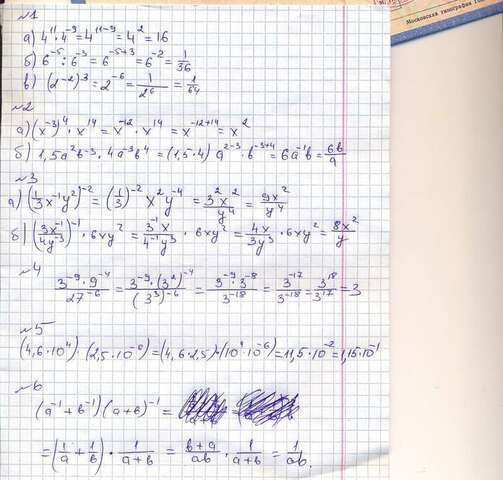 Московская типография Гоз
№1
а) 4¹¹·4⁻⁹=4¹¹⁻⁹=4²=16
б) 6⁻⁵:6⁻³=6⁻⁵⁺³=6⁻²=1/36
в) (2⁻²)³=2⁻⁶=1/2⁶=1/64
№2
а) (x⁻³)⁴·x¹⁴=x⁻¹²·x¹⁴=x⁻¹²⁺¹⁴=x²
б) 1,5a²b⁻³·4a⁻³b⁴=(1,5·4)a²⁻³·b⁻³⁺⁴=6a⁻¹b=6b/a
№3
а) (1/3 x⁻¹y²)⁻²=(1/3)⁻²x²y⁻⁴=3²x²/y⁴=9x²/y⁴
б) (3x⁻¹/4y⁻³)⁻¹·6xy²=3⁻¹x/4⁻¹y³·6xy²=4x/3y³·6xy²=8x²/y
№4
3⁻⁹·9⁻⁴/27⁻⁶=3⁻⁹·(3²)⁻⁴/(3³)⁻⁶=3⁻⁹·3⁻⁸/3⁻¹⁸=3⁻¹⁷/3⁻¹⁸=3¹⁸/3¹⁷=3
№5
(4,6·10⁴)·(2,5·10⁻⁶)=(4,6·2,5)·(10⁴·10⁻⁶)=11,5·10⁻²=1,15·10⁻¹
№6
(a⁻¹+b⁻¹)(a+b)⁻¹=
=(1/a+1/b)·1/(a+b)=(b+a)/ab·1/(a+b)=1/ab.